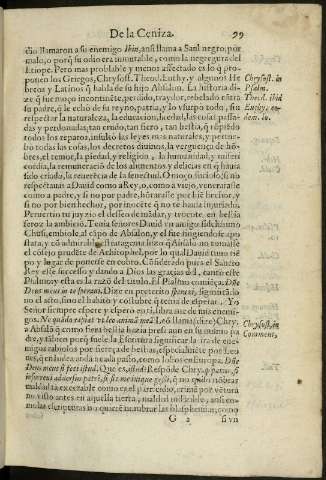 De la Ceniza. 99
cio llamaron a su enemigo Ibin, ansi llama a Saul negro, por
malo, o porq̃ su odio era inmutable, como la negregura del
Etiope. Pero mas probable y menos affectado es lo q̃ pro-
ponen los Griegos, Chrysost. Theod. Euthy. y algunos He
breos y Latinos q̃ habla de su hijo Absalon. La historia di-
ze q̃ fue moço incontinēte, perdido, traydor, rebelado cōtra
su padre, q̃ le echò de su reyno, patria, y lo vsurpo todo, sin
respectar la naturaleza, la educacion, la edad, las cosas passa-
das y perdonadas, tan crudo, tan fiero, tan bestia, q̃ rōpiēdo
todos los reparos, insulto las leyes mas naturales, y pertur-
bo todas las cosas, los decretos diuinos, la verguença de hō-
bres, el temor, la piedad, y religion, la humanidad, y miseri
cordia, la remuneració de los alimentos y delicias en q̃ hauia
sido criada, la reuerencia de la senectud. O moço suzio si no
respectauas a Dauid como a Rey, o, como a viejo, venerarasle
como a padre, y si no por padre, hōrarasle por biē hechor, y
si no por bien hechor, por inocēte q̃ no te hauia injuriado.
Peruertio tu juyzio el desseo de mādar, y trocote en bestia
feroz la ambició. Tenia señores Dauid vn amigo fidelissimo
Chusi, embiole al cāpo de Absalon, y el fue fingiendose
apostata, y cō admirable estratagema hizo q̃ Absalō no tomasse
el cōsejo prudēte de Achitophel, por lo qual Dauid tuuo tiē
po y lugar de ponerse en cobro. Cōsiderado pues el Sancto
Rey este successo y dando a Dios las gracias del, canto este
Psalmo; y esta es la razō del titulo. El Psalmo comiēça: Dñe
Deus meus in te speraui. Dize en preterito speraui, significādo
no el acto, sino el habito y costūbre q̃ tema de esperar. Yo
Señor siempre espere y espero en ti, librame de mis enemi-
gos. Ne quādo rapiat vt leo animā meā. Leō llama (dize) Chry.
a Absalō q̃ como fiera bestia hazia presa aun en su mismo pa
dre, y sabreis porq̃ suele la Escritura significar la ira de ene-
migos rabiosos por fiereça de bestias, especialmēte por Leo-
nes, q̃ embidos andā a cada passo, como lobos en Europa. Dñe
Deus meus si feci istud. Que es, istud? Respōde Chry.
insurrexi aduersus patrē, si sic me iniquè gessi, q̃ no quiso nōbrar
maldad tan execrable como es el parricidio, crimē por vētura
no visto antes en aquella tierra, maldad indicible, ansi co-
mo las escripturas no quierē nombrar las blasphemias, como
G 2 si vn
Chrysost. in
Psalm.
Theod. ibid
Euthy. eo-
dem. lo.
Chrysost. in
Coment.